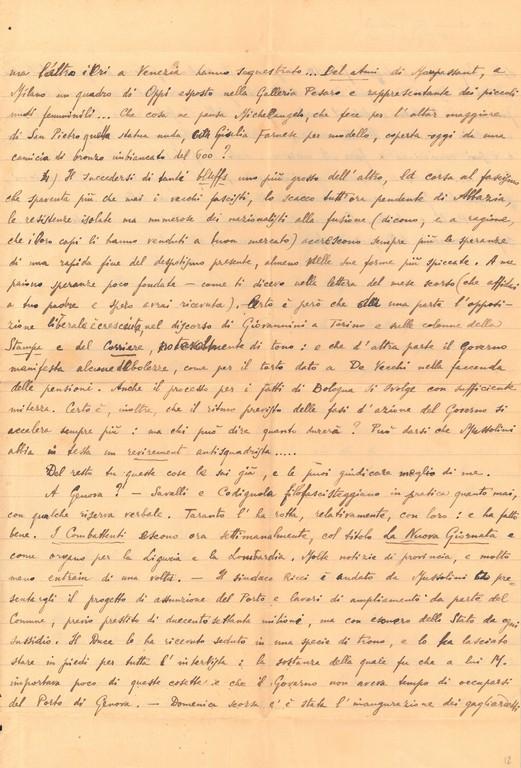 ma l'altro ieri a Venezia hanno sequestrato... Bel Ami di Maupassant, a
Milano un quadro di Oppi esposto nella Galleria Pesaro e rappresentante dei piccoli
nudi femminili... Che cosa ne pensa Michelangelo, che fece per l'altar maggiore
di San Pietro quella statua nuda, con Giulia Farnese per modello, coperta oggi da una
camicia di bronzo imbiancato del 600?
Il succedersi di tanti bluffs uno più grosso dell'altro, la corsa al fascismo
che spaventa più che mai i vecchi fascisti, lo scacco tutt'ora pendente di Abbazia,
le resistenze isolate ma numerose dei nazionalisti alla fusione (dicono, e a ragione,
che i loro capi li hanno venduti a buon mercato) accrescono sempre più le speranze
di una rapida fine del despotismo presente, almeno nelle sue forme più spiccate. A me
paiono speranze poco fondate - come ti dicevo nella lettera del mese scorso (che affidai
a tuo padre e spero avrai ricevuta). Certo è però che da una parte l'opposi-
zione liberale è cresciuta, nel discorso di Giovannini a Torino e sulle colonne della
Stampa e del Corriere, notevolmente di tono: e che d'altra parte il Governo
manifesta alcune debolezze, come per il torto dato a De Vecchi nella faccenda
delle pensioni. Anche il processo per i fatti di Bologna si svolge con sufficiente
mitezza. Certo è, inoltre, che il ritmo previsto delle fasi d'azione del Governo si
accelera sempre più: ma chi può dire quanto durerà? Può darsi che Mussolini
abbia in testa un revirement antisquadrista.....
Del resto tu queste cose le sai già, e le puoi giudicare meglio di me.
A Genova? - Savelli e Codignola filofascisteggiano in pratica quanto mai,
con qualche riserva verbale. Taranto l'ha rotta, relativamente, con loro: e ha fatto
bene. I Combattenti escono ora settimanalmente, col titolo La Nuova Giornata e
come organo per la Liguria e la Lombardia. Molte notizie di provincia, e molto
meno entrain di una volta. - Il sindaco Ricci è andato da Mussolini a pre-
sentargli il progetto di assunzione del Porto e lavori di ampliamento da parte del
Comune, previo prestito di duecentosettanta milioni, ma con esonero dello Stato da ogni
sussidio. Il Duce lo ha ricevuto seduto in una specie di trono, e lo ha lasciato
stare in piedi per tutta l'intervista: la sostanza della quale fu che a lui M.
importava poco di queste cosette e che il Governo non aveva tempo di occuparsi
del Porto di Genova. - Domenica scorsa c'è stata l'inaugurazione dei gagliardetti